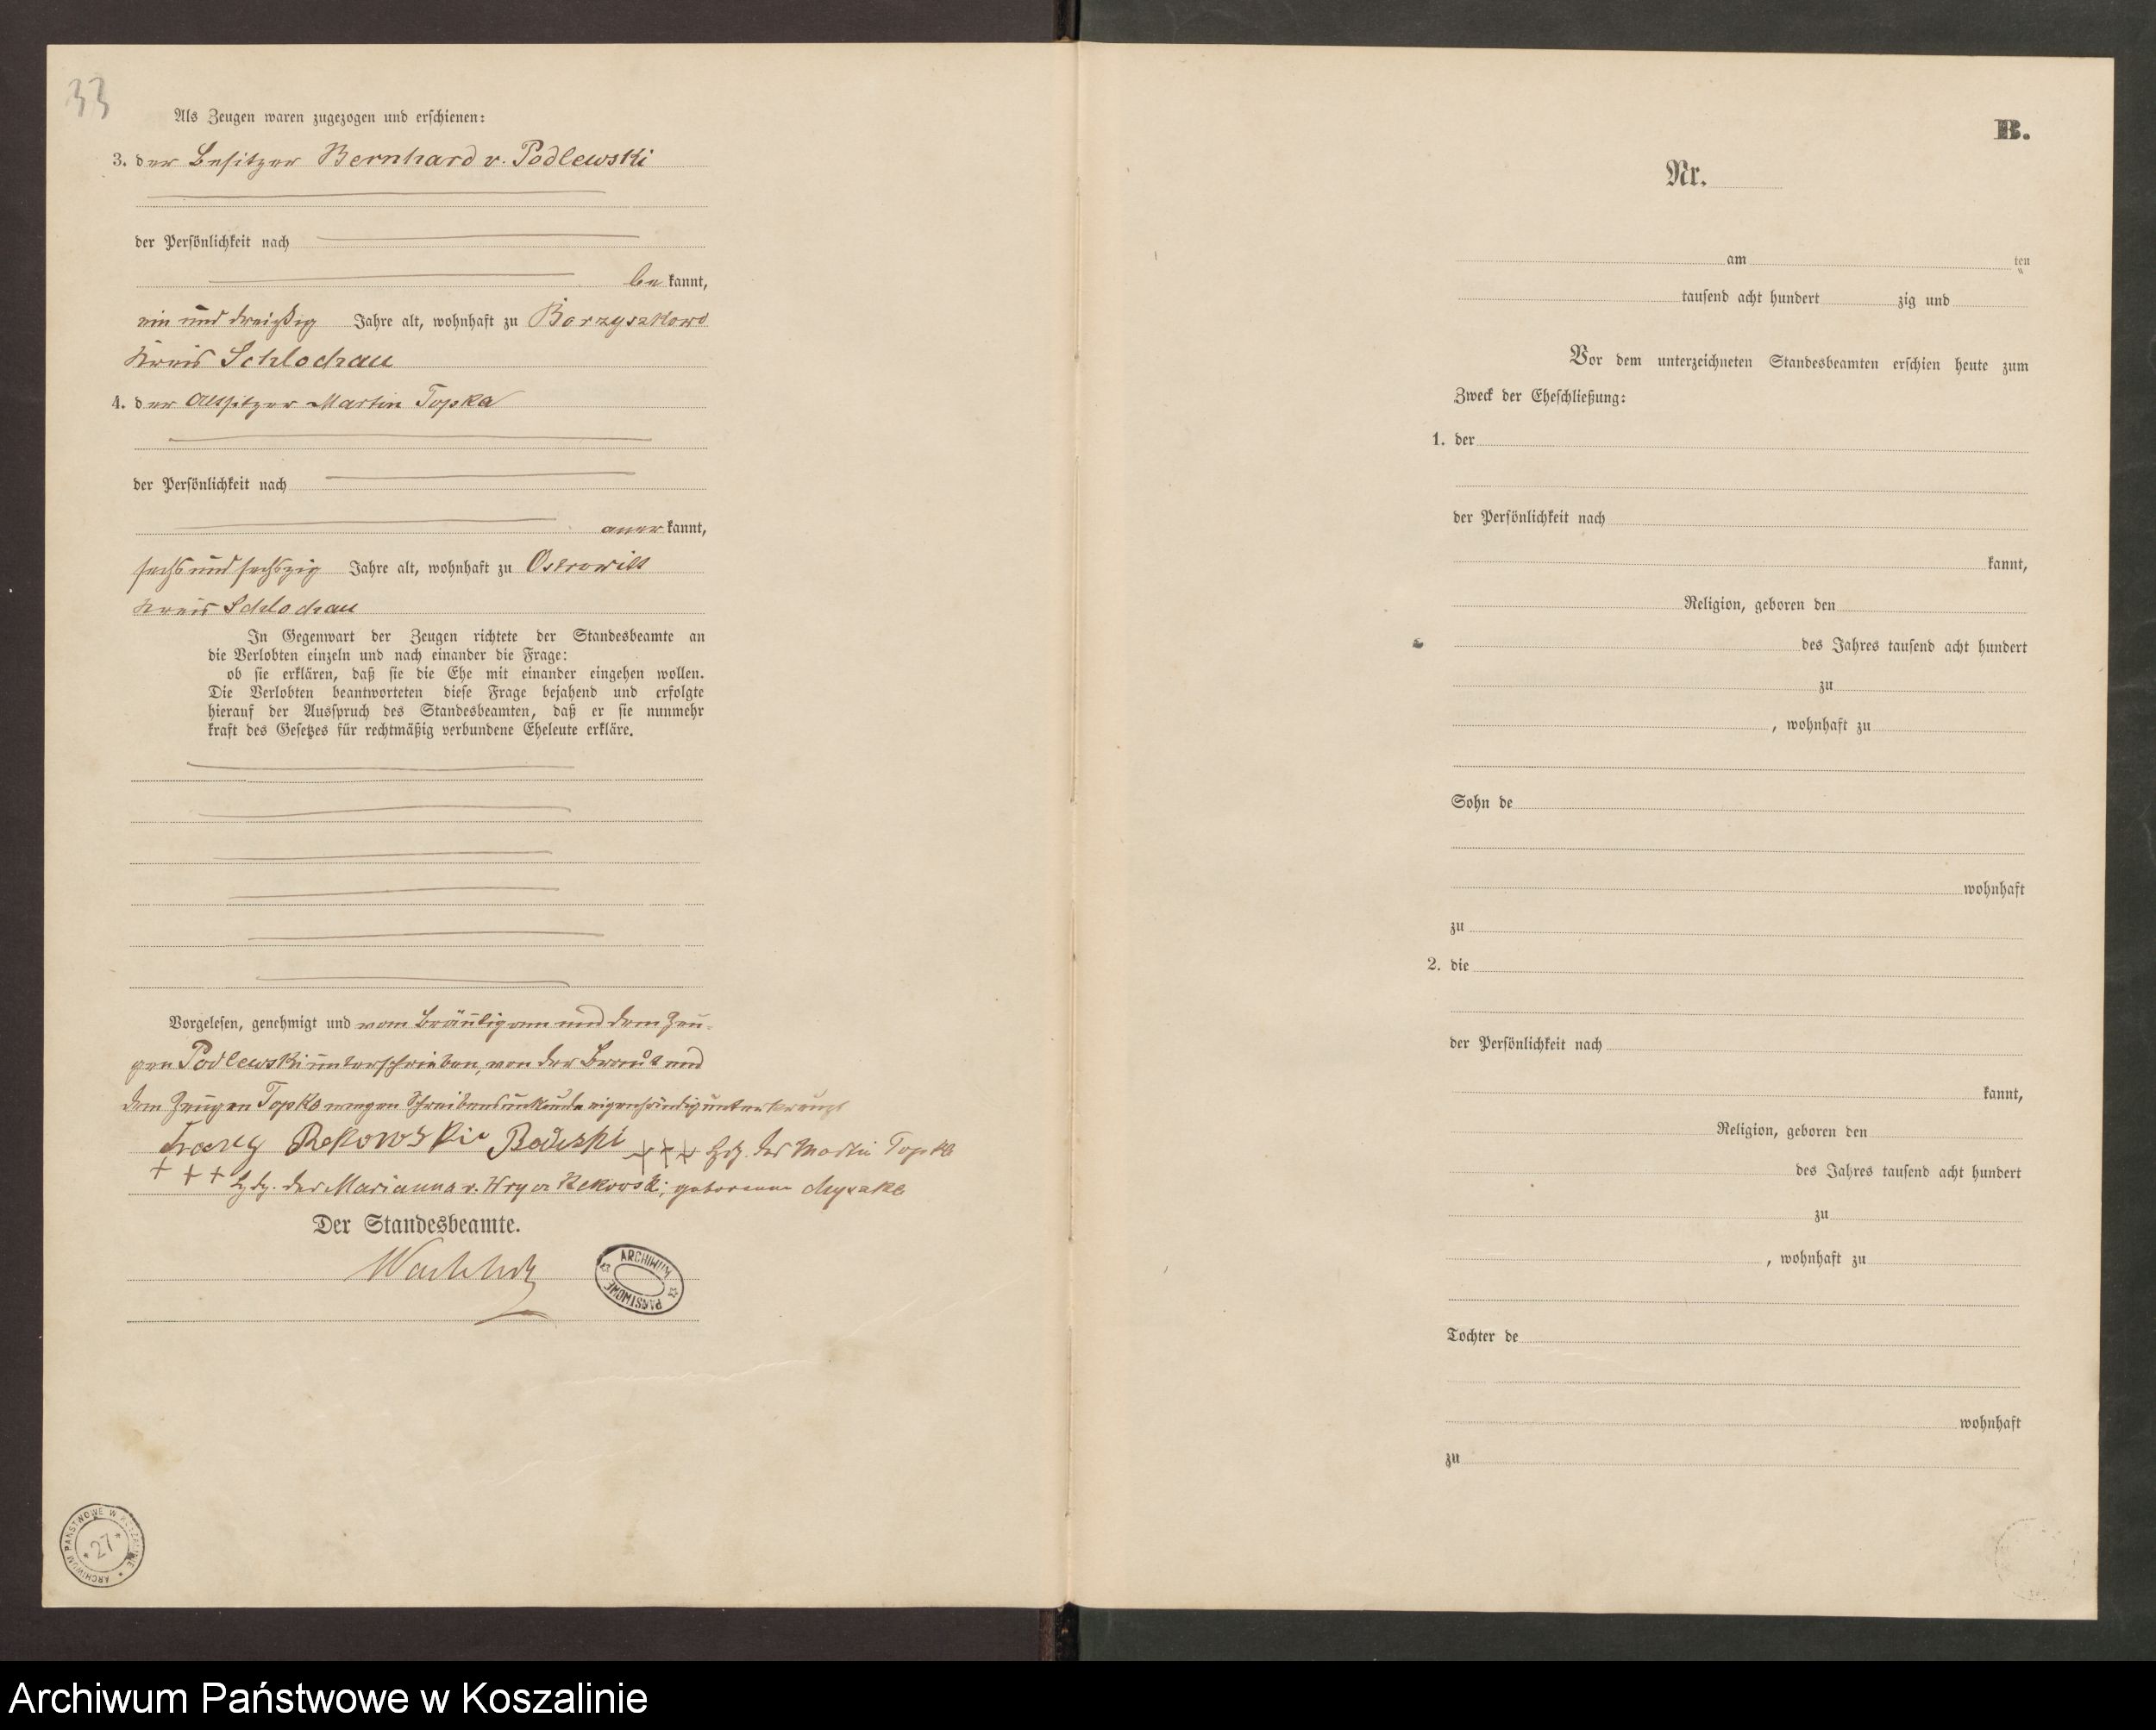 33
Als Zeugen waren zugezogen und erschienen:
3. der Besitzer Bernhard v. Podlewski
der Persönlichkeit nach
be kannt,
ein und dreißig Jahre alt, wohnhaft zu Borzyszkowo
Kreis Schlochau
4. der Altsitzer Martin Topka
der Persönlichkeit nach
aner kannt,
sechs und sechszig Jahre alt, wohnhaft zu Ostrowitt
Kreis Schlochau
In Gegenwart der Zeugen richtete der Standesbeamte an
die Verlobten einzeln und nach einander die Frage:
ob sie erklären, daß sie die Ehe mit einander eingehen wollen.
Die Verlobten beantworteten diese Frage bejahend und erfolgte
hierauf der Ausspruch des Standesbeamten, daß er sie nunmehr
kraft des Gesetzes für rechtmäßig verbundene Eheleute erkläre.
Vorgelesen, genehmigt und vom Bräutigam und dem Zeu-
gen Podlewski unterschrieben, von der Braut und
dem Zeugen Topka wegen Schreibensunkunde eigenhändig unterkreuzt
Rekowski +++ Hdz. des Martin Topka
+++ Hdz. der Marianna v. Wrycz Rekowski, geborenen
Der Standesbeamte.
ARCHIWUM PAŃSTWOWE
ARCHIWUM PAŃSTWOWE W KOSZALINIE
27
B.
Nr.
am ten
tausend acht hundert zig und
Vor dem unterzeichneten Standesbeamten erschien heute zum
Zweck der Eheschließung:
1. der
der Persönlichkeit nach
kannt,
Religion, geboren den
des Jahres tausend acht hundert
zu
, wohnhaft zu
Sohn de
wohnhaft
zu
2. die
der Persönlichkeit nach
kannt,
Religion, geboren den
des Jahres tausend acht hundert
zu
, wohnhaft zu
Tochter de
wohnhaft
zu
Archiwum Państwowe w Koszalinie